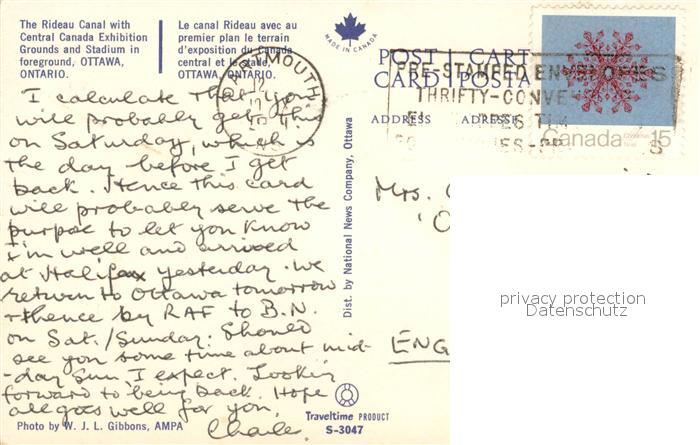 The Rideau Canal with
Central Canada Exhibition
Grounds and Stadium in
foreground, OTTAWA,
ONTARIO.
Le canal Rideau avec au
premier plan le terrain
d'exposition du Canada
central et le stade,
OTTAWA, ONTARIO.
MADE IN CANADA
POST CARTE
CARD POSTA
ADDRESS ADRESSE
PRE-STAMPED ENVELOPES
THRIFTY-CONVE
Canada 15
I calculate that you
will probably get this
on Saturday, which is
the day before I get
back. Hence this card
will probably serve the
purpose to let you know
I'm well and arrived
at Halifax yesterday. We
return to Ottawa tomorrow
+ thence by RAF to B.N.
on Sat./Sunday. Should
see you some time about mid-
-day Sun, I expect. Looking
forward to being back. Hope
all goes well for you,
Photo by W. J. L. Gibbons, AMPA
Dist. by National News Company, Ottawa
Traveltime PRODUCT
S-3047
Mrs.
ENG
privacy protection
Datenschutz